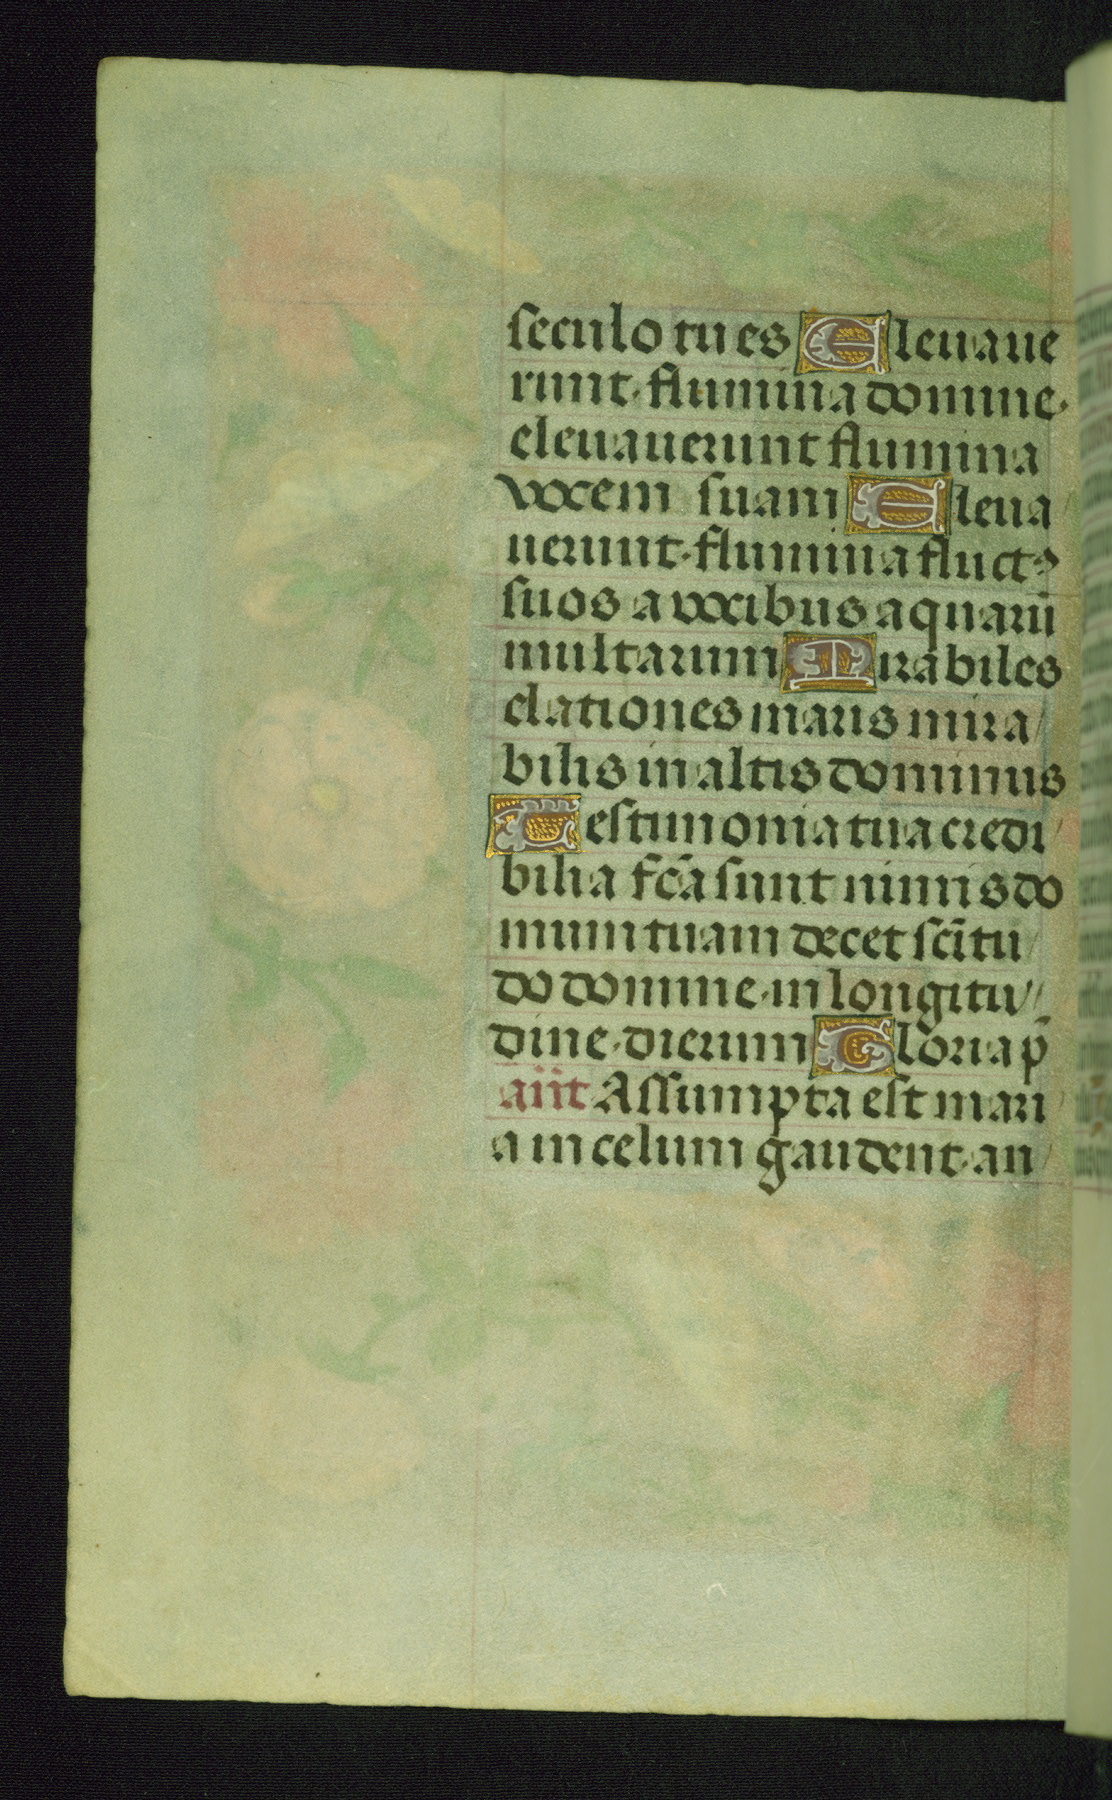 seculo tu es Eleuaue
runt flumina domine
eleuauerunt flumina
vocem suam Eleua
uerunt flumina fluct9
suos a vocibus aquarū
multarum Mirabiles
elationes maris mira
bilis in altis dominus
Testimonia tua credi
bilia fcā sunt nimis do
mum tuam decet scītu
do domine in longitu
dine dierum Gloria p̄
añt Assumpta est mari
a in celum gaudent an